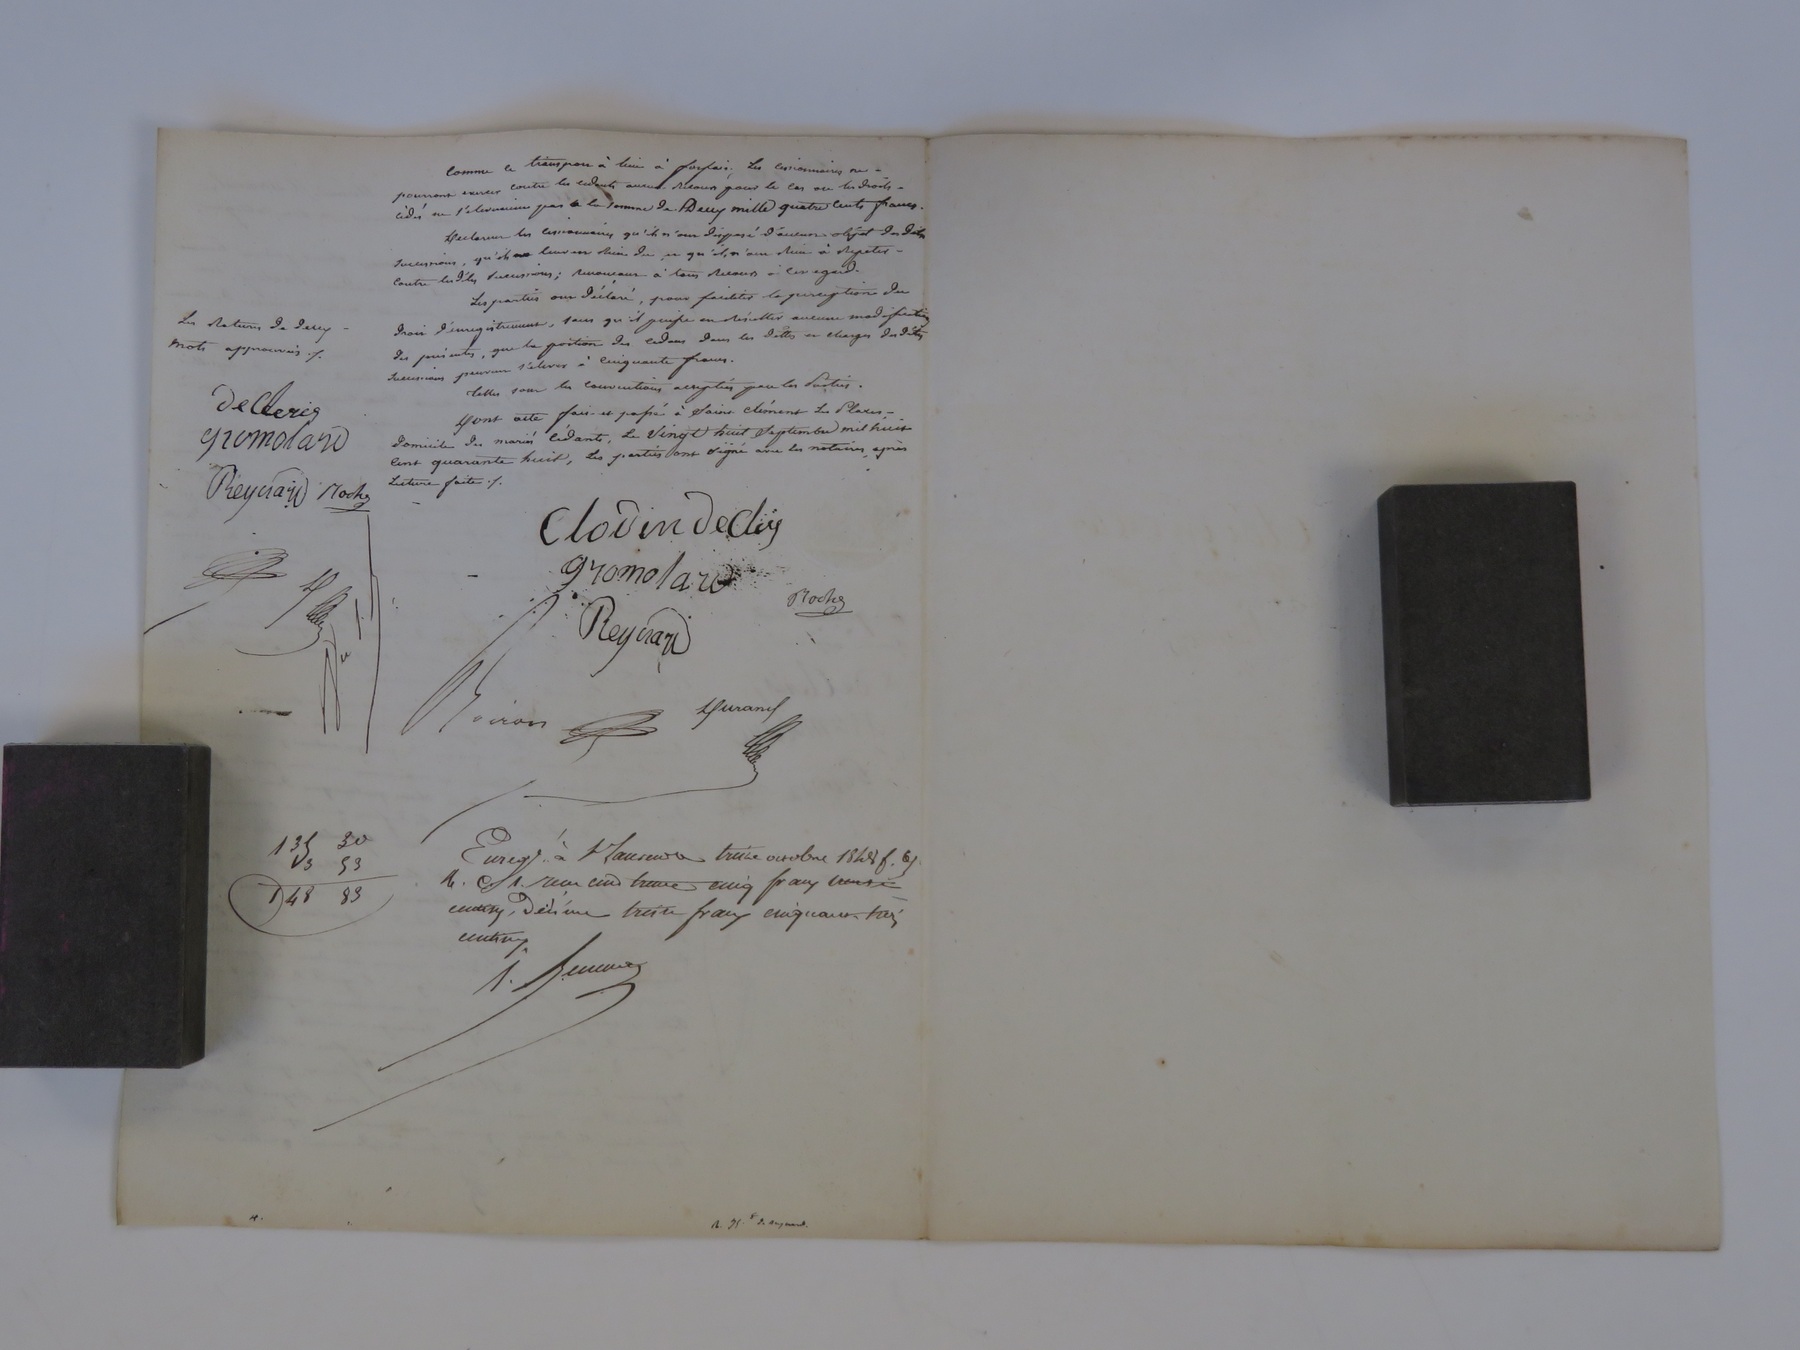 Comme ce transport à lieu à forfait, Les cessionnaires ne
pourront exercer contre les cédants aucun recours pour le cas ou les droits
cédés ne s'eleveraient pas à la somme de Deux mille quatre cents francs.
Declarent les cessionnaires qu'ils n'ont disposé d'aucun objet des dites
successions, qu'ils ne leur en doivent rien, et qu'ils n'ont rien à repeter
contre les dites successions; renoncant à tous recours à cet égard.
Les parties ont déclaré, pour faciliter la perception du
droit d'enregistrement, sans qu'il puisse en résulter aucune modification
des présentes, que la portion des cédans dans les dettes et charges des dites
successions pouvait s'elever à cinquante francs.
Telles sont les conventions acceptées par les Parties.
Dont acte fait et passé à Saint Clément Les Places
domicile des mariés cédants, Le Vingt huit Septembre mil huit
cent quarante huit, Les parties ont signé avec les notaires après
Lecture faite ./.
Les Ratures de
mots approuvées ./.
deClerig
gromolard
Reynard Roche
Clodin deClerig
gromolard
Roche
Reynard
Boiron Durand
135 30
13 53
148 83
Enregé. à St Laurent treize octobre 1848 f.
R. cent trente cinq francs trente
centimes, Décime treize francs cinquante trois
centimes